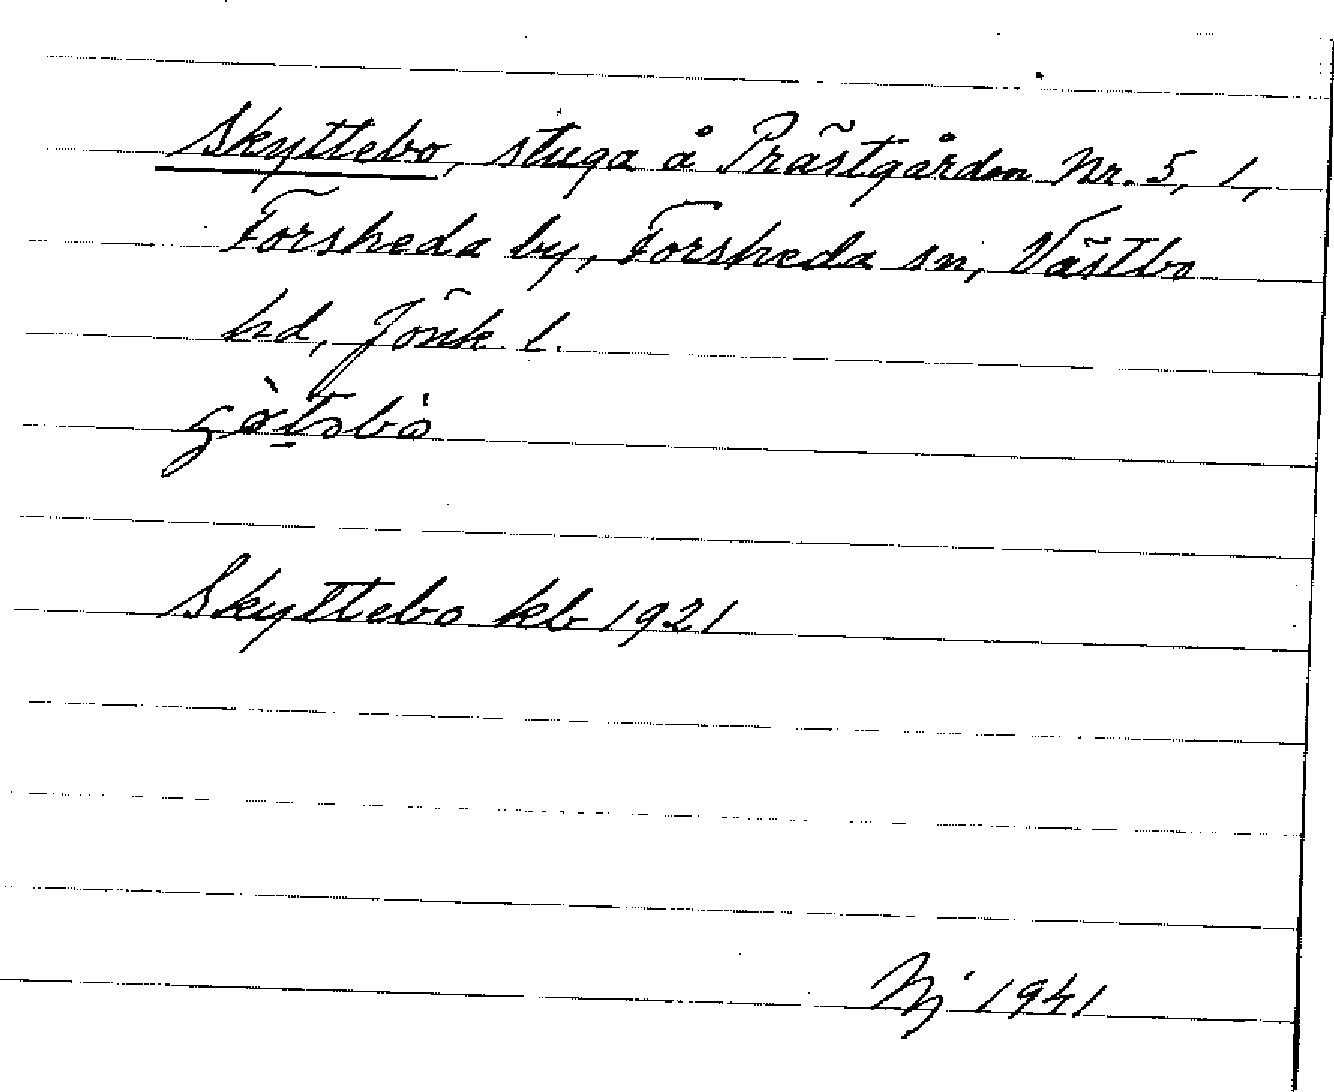 Skyttebo, stuga å Prästgården Nr. 5, 1,
Forsheda by, Forsheda sn, Västbo
hd, Jönk. l.
Skyttebo kb 1921
Nj 1941